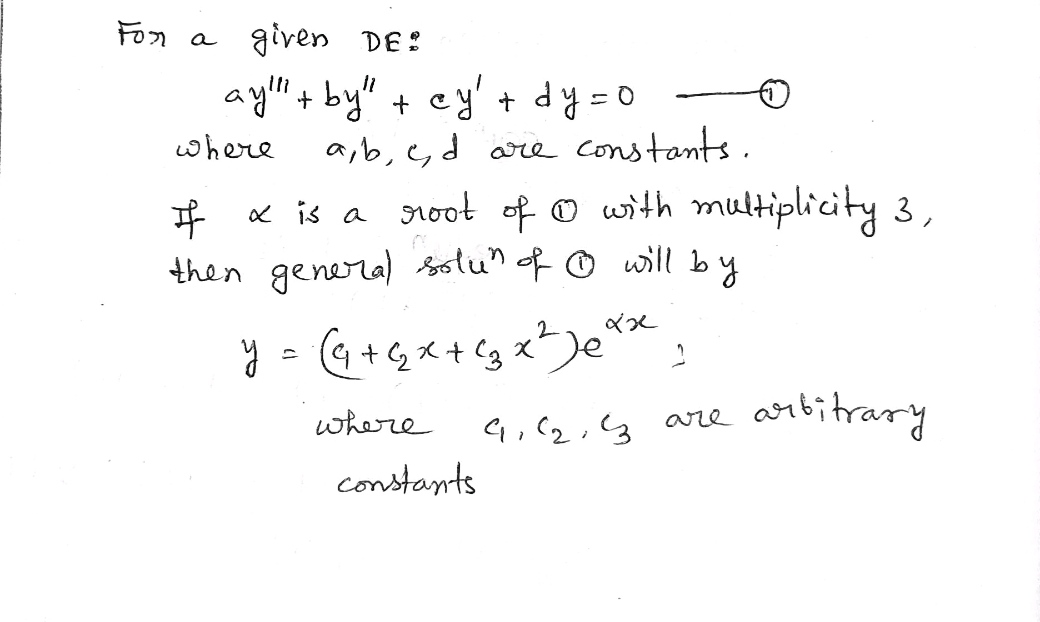 For a given DE:
ay''' + by'' + cy' + dy = 0 —— ①
where a, b, c, d are constants.
If α is a root of ① with multiplicity 3,
then general soluⁿ of ① will by
y = (c₁ + c₂ x + c₃ x²) e^{αx} ;
where c₁, c₂, c₃ are arbitrary
constants